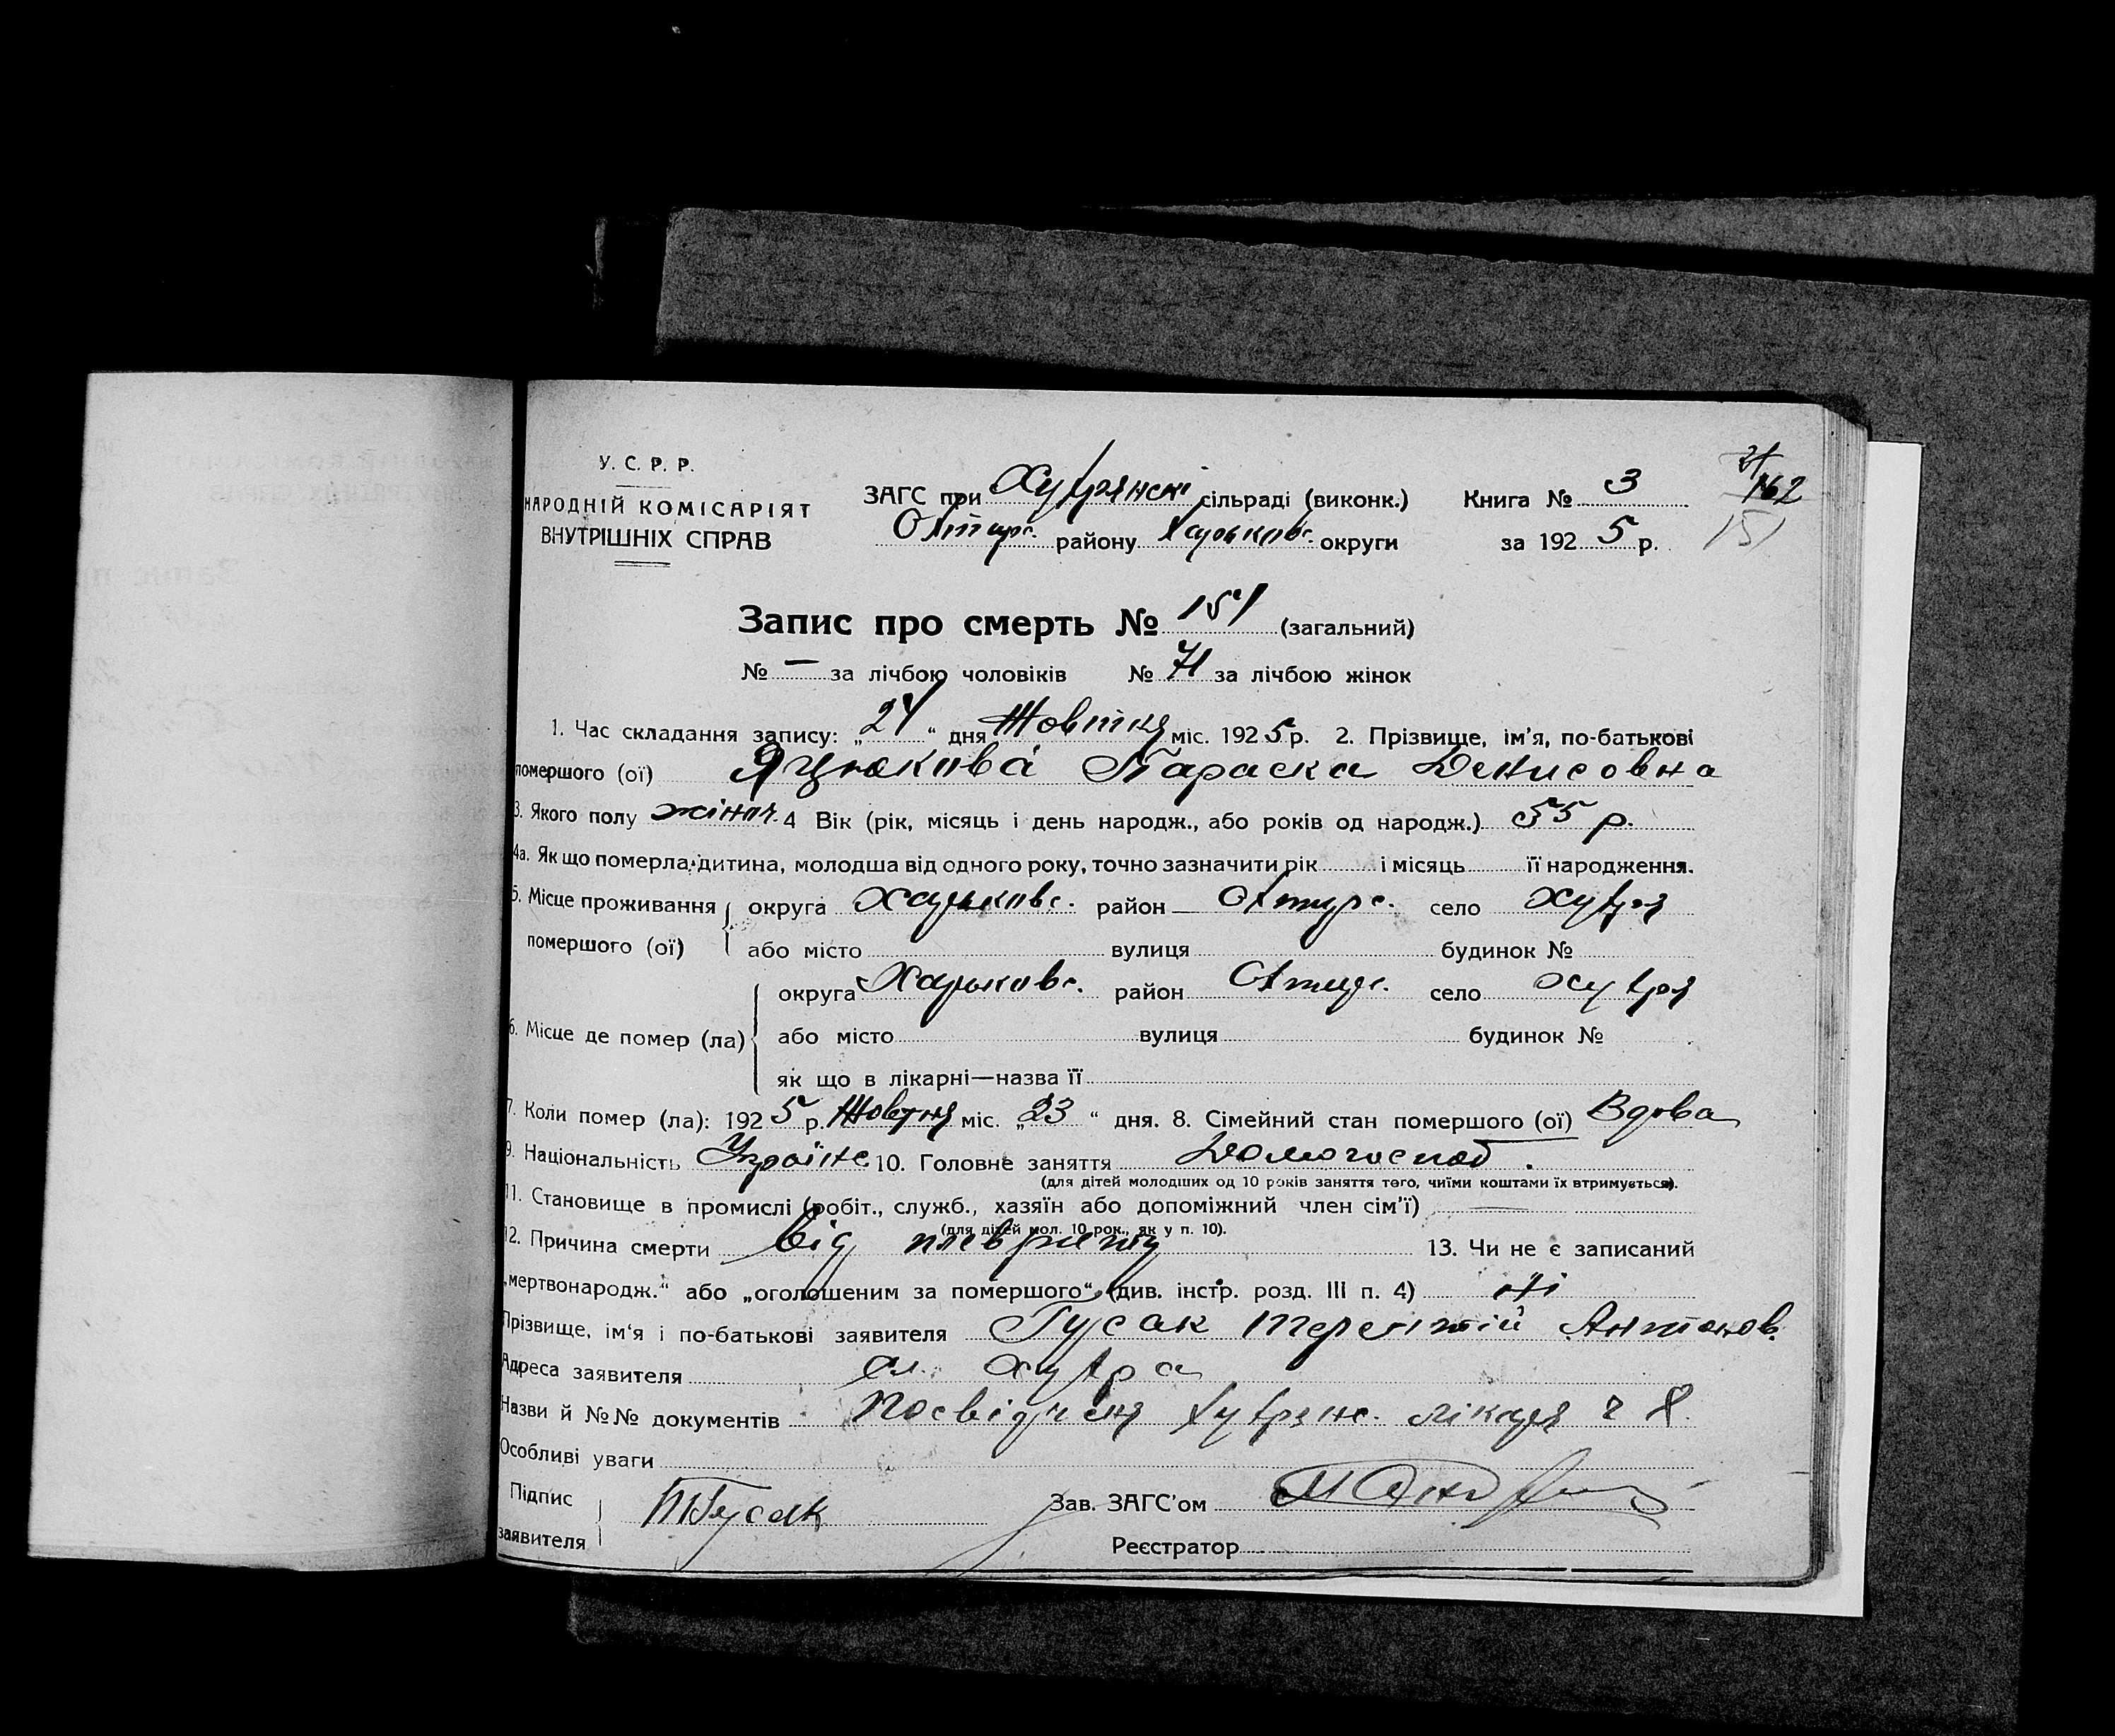 У. С. Р. Р.
НАРОДНІЙ КОМІСАРІЯТ
ВНУТРІШНІХ СПРАВ
ЗАГС при Хухрянскі сільраді (виконк.)
Охтирс. району Харьковс. округи
Книга № 3
за 1925 р.
162
151
Запис про смерть № 151 (загальний)
№ — за лічбою чоловіків № 71 за лічбою жінок
1. Час складання запису: „24“ дня Жовтня міс. 1925 р. 2. Прізвище, ім'я, по-батькові
помершого (ої) Яцюкова Параска Денисовна
3. Якого полу жіноч. 4 Вік (рік, місяць і день народж., або років од народж.) 55 р.
4а. Як що померла дитина, молодша від одного року, точно зазначити рік і місяць її народження.
5. Місце проживання округа Харьковс. район Охтирс. село Хухря
помершого (ої) або місто вулиця будинок №
округа Харьковс. район Охтирс. село Хухря
6. Місце де помер (ла) або місто вулиця будинок №
як що в лікарні—назва її
7. Коли помер (ла): 1925 р. Жовтня міс. „23“ дня. 8. Сімейний стан помершого (ої) Вдова
9. Національність Україне 10. Головне заняття Домогоспод.
(для дітей молодших од 10 років заняття того, чиїми коштами їх втримується).
11. Становище в промислі (робіт., служб., хазяїн або допоміжний член сім'ї) —
(для дітей мол. 10 рок., як у п. 10).
12. Причина смерти від плевриту 13. Чи не є записаний
„мертвонародж.“ або „оголошеним за помершого“ (див. інстр. розд. III п. 4) ні
Прізвище, ім'я і по-батькові заявителя Гусак Терентій Антонов.
Адреса заявителя сл. Хухра
Назви й №№ документів Посвідченя Хухрянс. лікаря ч 8.
Особливі уваги
Підпис
заявителя Т Гусак
Зав. ЗАГС'ом
Реєстратор